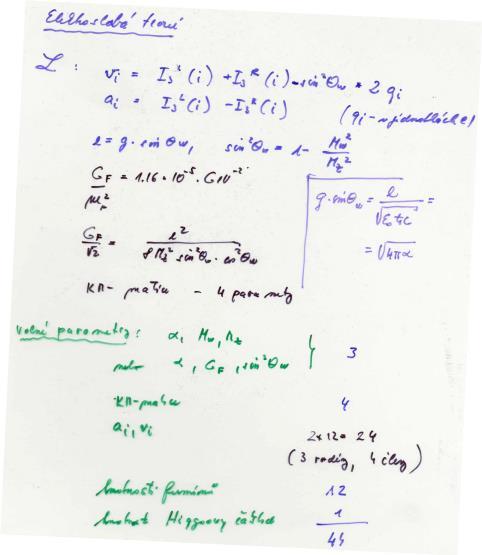 Elektroslabá teorie
L : v_i = I_3^L(i) + I_3^R(i) - sin²θ_w * 2 q_i
a_i = I_3^L(i) - I_3^R(i)
(q_i - v jednotkách e)
e = g · sin θ_w, sin²θ_w = 1 - M_w²/M_z²
G_F = 1.16 * 10^-5 · GeV^-2
g·sinθ_w = e/√(ε_0 ħc) =
= √(4πα)
G_F/√2 = e²/(8 M_z² sin²θ_w · cos²θ_w)
KM - matice - 4 parametry
Volné parametry: α, M_w, M_z
nebo α, G_F, sin²θ_w } 3
KM-matice 4
a_i, v_i 2*12 = 24
(3 rodiny, 4 členy)
hmotnosti fermionů 12
hmotnost Higgsovy částice 1
44